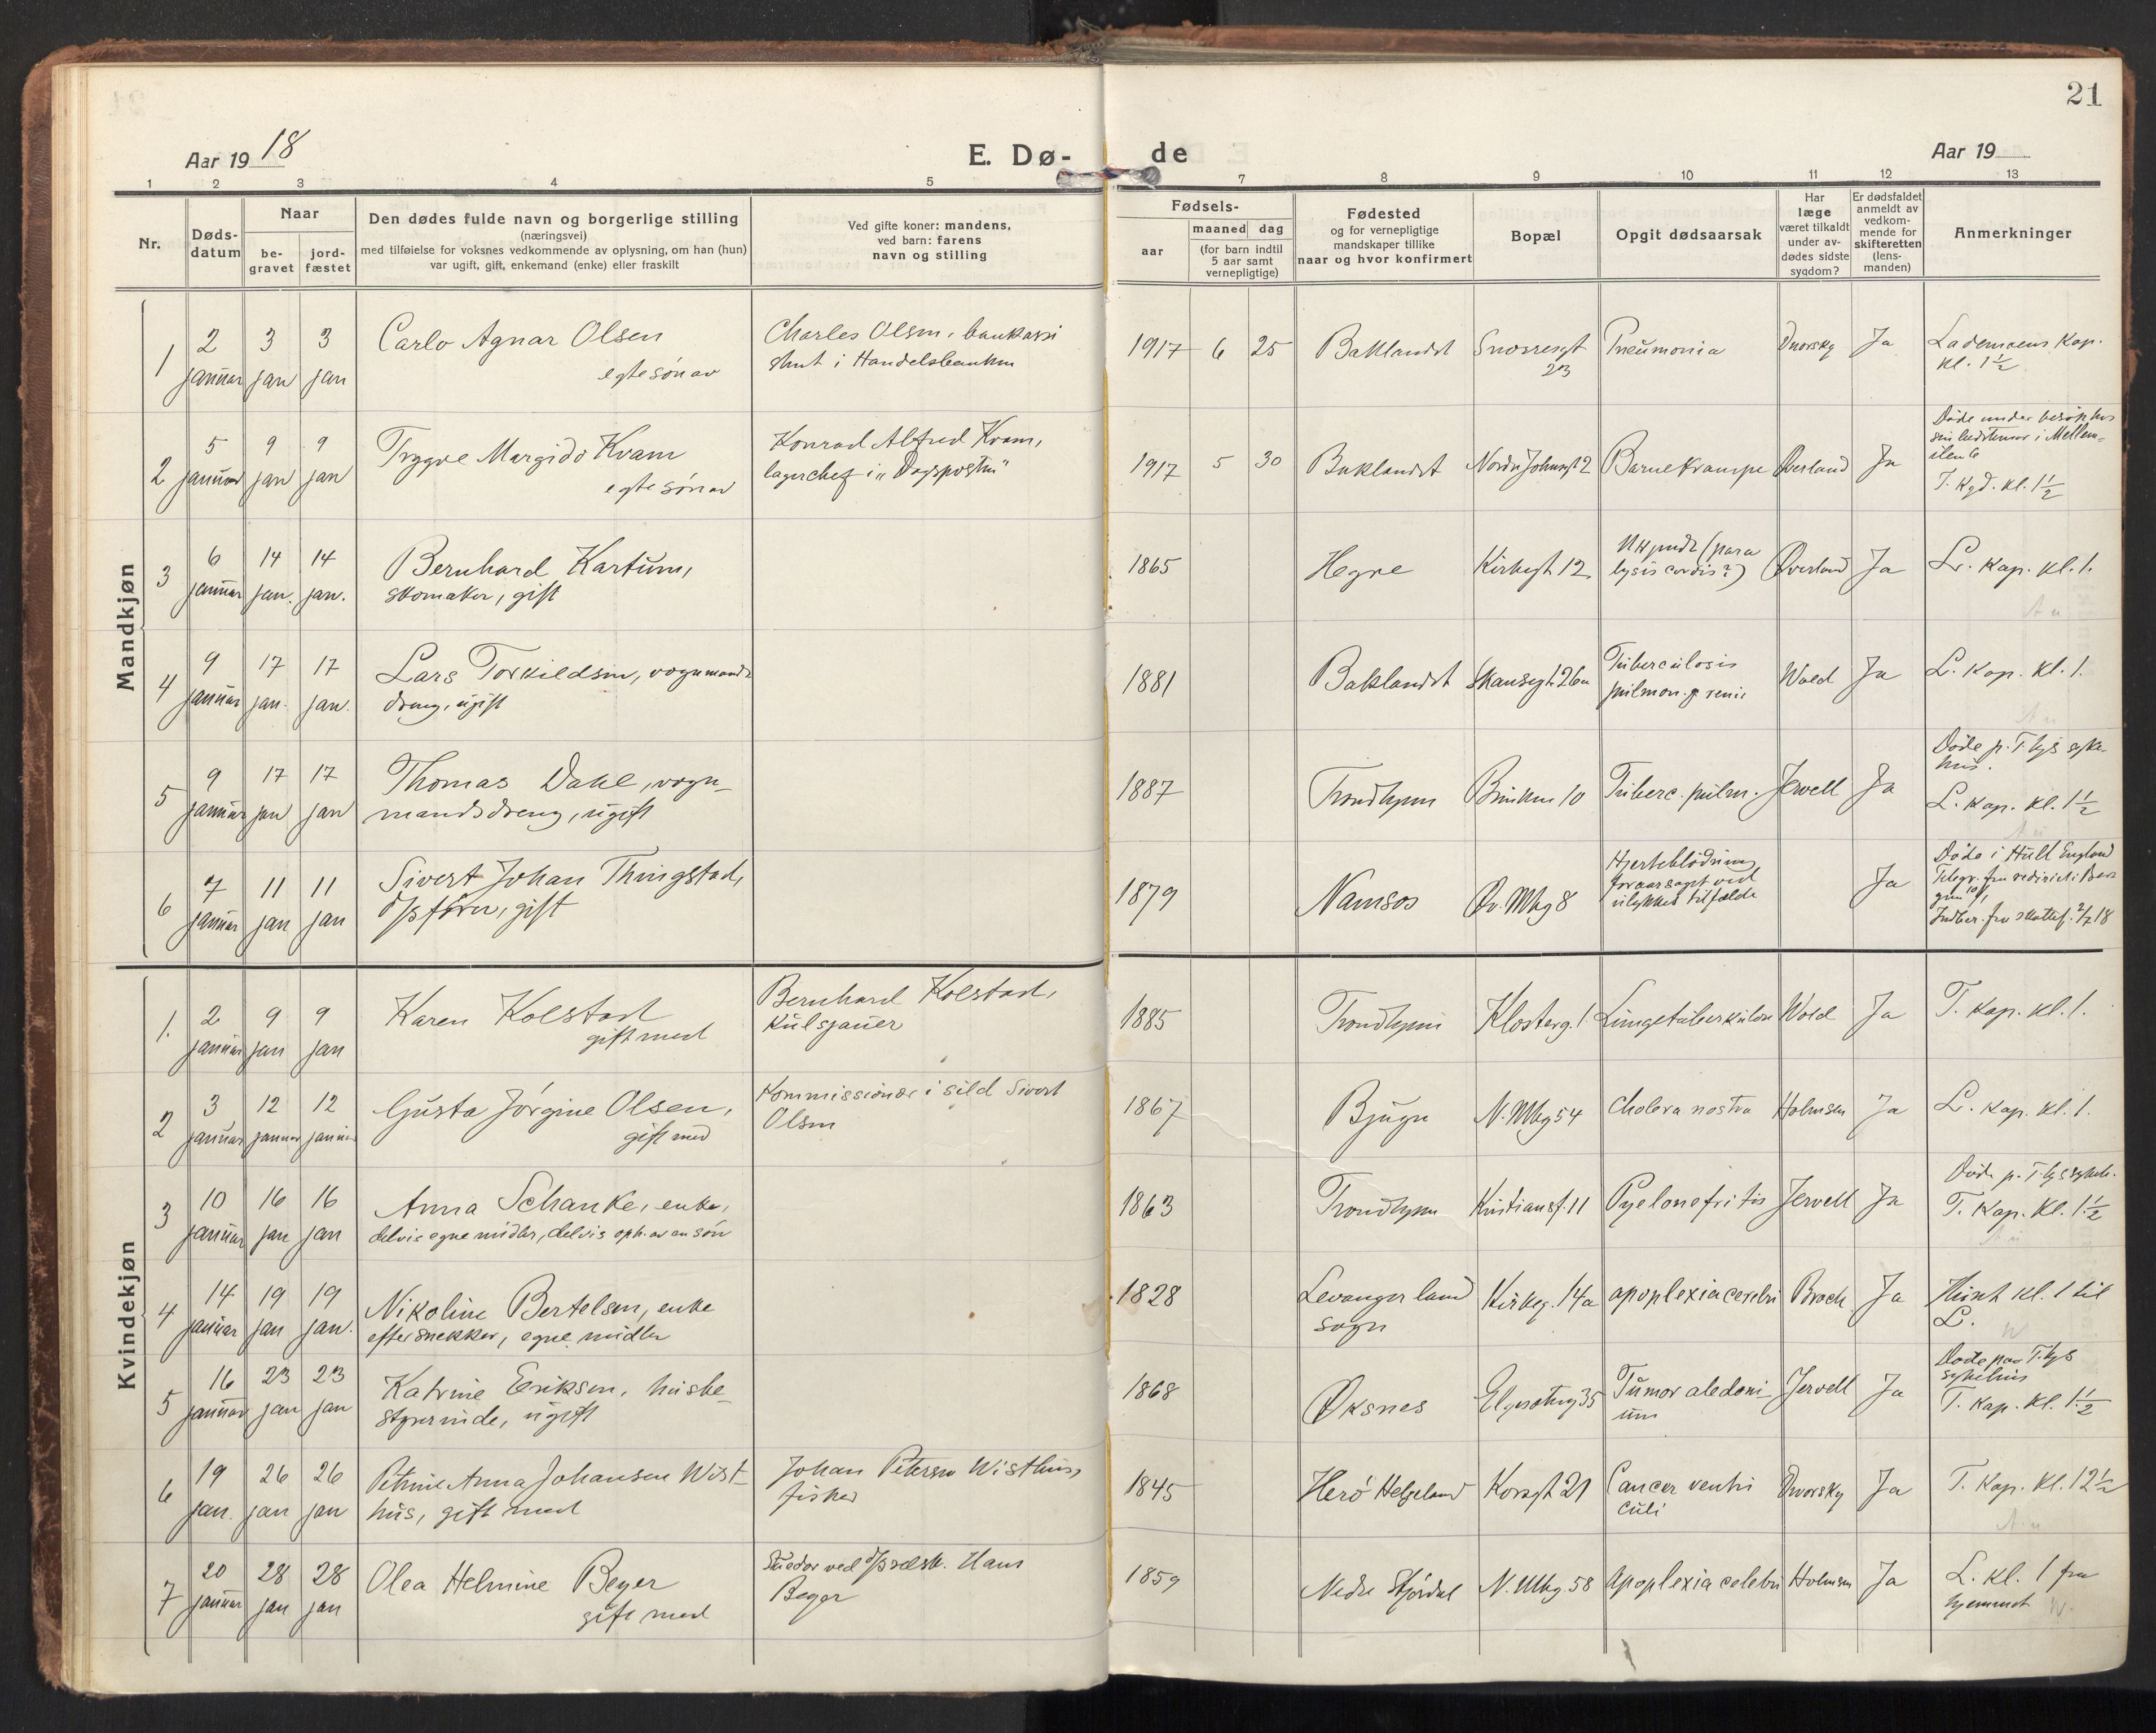 21
Aar 1918
E. Dø-
de
Aar 19
1 2 3 4 5 7 8 9 10 11 12 13
Nr.
Døds-
datum
Naar
be-
gravet
jord-
fæstet
Den dødes fulde navn og borgerlige stilling
(næringsvei)
med tilføielse for voksnes vedkommende av oplysning, om han (hun)
var ugift, gift, enkemand (enke) eller fraskilt
Ved gifte koner: mandens,
ved barn: farens
navn og stilling
Fødsels-
aar
maaned dag
(for barn indtil
5 aar samt
vernepligtige)
Fødested
og for vernepligtige
mandskaper tillike
naar og hvor konfirmert
Bopæl
Opgit dødsaarsak
Har
læge
været tilkaldt
under av-
dødes sidste
sygdom?
Er dødsfaldet
anmeldt av
vedkom-
mende for
skifteretten
(lens-
manden)
Anmerkninger
Mandkjøn
1 2 3 3 Carlo Agnar Olsen Charles Olsen, bankassi
januar jan jan egte søn av stent i Handelsbanken
1917 6 25 Baklandet Snorresgt Pneumonia Dvorsky Ja Lademoens Kap.
23 kl. 1½
2 5 9 9 Trygve Margido Kvam Konrad Alfred Kvam,
januar jan jan egte søn av lagerchef i "Dagsposten"
1917 5 30 Baklandet Nordre Johansgt 2 Barnekrampe Øverland Ja Døde under besøk hos
sin bedstemor i Mellem-
ilen 6
T. Kgd. kl. 1½
3 6 14 14 Bernhard Kartum,
januar jan. jan. skomaker, gift
1865 Hegre Kirkegt 12. (para
lysis cordis?) Øverland Ja L. Kap. kl. 1.
4 9 17 17 Lars Torkildsen, vognmands
januar jan. jan. dreng, ugift
1881 Baklandet Skansegt. 26a Tuberculosis
pulmon. & renis Wold Ja L. Kap. kl. 1.
5 9 17 17 Thomas Dahl, vogn-
januar jan jan mandsdreng, ugift
1887 Trondhjem Brinken 10 Tuberc. pulm. Jervell Ja Døde p. T.hjs syke-
hus.
L. Kap. kl. 1½
6 7 11 11 Sivert Johan Thingstad,
januar jan jan d/s fører, gift
1879 Namsos Øv. Mbg 8 Hjerteblødning
foraarsaget ved
ulykkestilfælde Ja Døde i Hull England
Telegr. fra rederiet i Ber
gen
Indber. fra skattef. 2/7 18
Kvindekjøn
1. 2 9 9 Karen Kolstad Bernhard Kolstad,
januar jan jan gift med kulsjauer
1885 Trondhjem Klosterg. 1 Lungetuberkulose Wold Ja T. Kap. kl. 1.
2 3 12 12 Gusta Jørgine Olsen, Kommissionær i sild Sivert
januar januar januar gift med Olsen
1867 Bjugn N. Mbg 54 Cholera nostra Holmsen Ja L. Kap. kl. 1.
3 10 16 16 Anna Schanke, enke,
januar jan jan delvis egne midler, delvis oph. av en søn
1863 Trondhjem Kristiansf. 11 Pyelonefritis Jervell Ja Døde p. T.hjs sykeh.
T. Kap. Kl. 1½
4 14 19 19 Nikoline Bertelsen, enke
januar jan jan. efter snekker, egne midler
1828 Levanger land
sogn Kirkeg. 14a apoplexia cerebri Broch Ja Hientet kl. 1 til
L.
5 16 23 23 Katrine Eriksen, hushe-
januar jan jan styrerinde, ugift
1868 Øksnes Elgesetervg 35 Tumor abdomi-
um Jervell Ja Døde paa T.hjs
sykehus
T. Kap. Kl. 1½
6 19 26 26 Petrine Anna Johansen Wist- Johan Petersen Wisthus,
jan. jan jan hus, gift med fisker
1845 Herø Helgeland Korsgt 21 Cancer ventri
culi Dvorsky Ja T. Kap. Kl. 12½
7 20 28 28 Olea Helmine Beyer Stuedor ved d/s selsk. Hans
januar jan jan gift med Beyer
1859 Nedre Stjørdal N. Mbg. 58 Apoplexia celebri Holmsen Ja L. kl. 1 fra
hjemmet